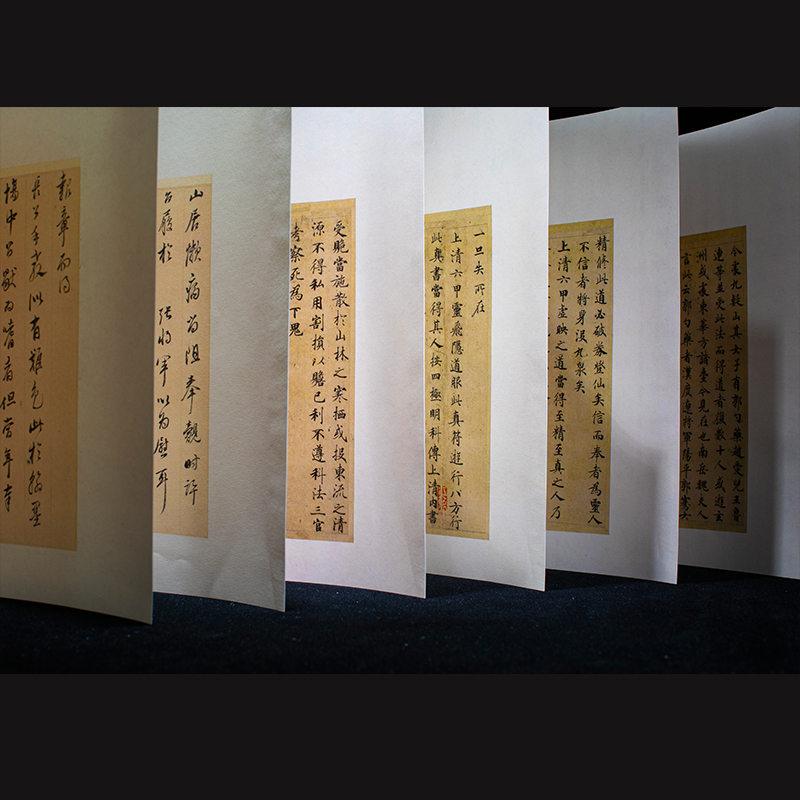 令處九疑山其女子有郭勺藥趙愛兒王魯
連等並受此法而得道者復數十人或遊玄
洲或處東華方諸臺今見在也南岳魏夫人
言此云郭勺藥者漢度遼將軍陽平郭騫女
精修此道必破券登仙矣信而奉者為靈人
不信者將身沒九泉矣
上清六甲虛映之道當得至精至真之人乃
一旦失所在
上清六甲靈飛隱道服此真符遊行八方行
此真書當得其人按四極明科傳上清內書
受賝當施散於山林之寒栖或投東流之清
源不得私用割損以贍己利不遵科法三官
考察死為下鬼
山居懶病為阻奉覿時許
於 張將軍以為慰耳
報章而得
長公手教似有難色此於翰墨
場中為病但當年